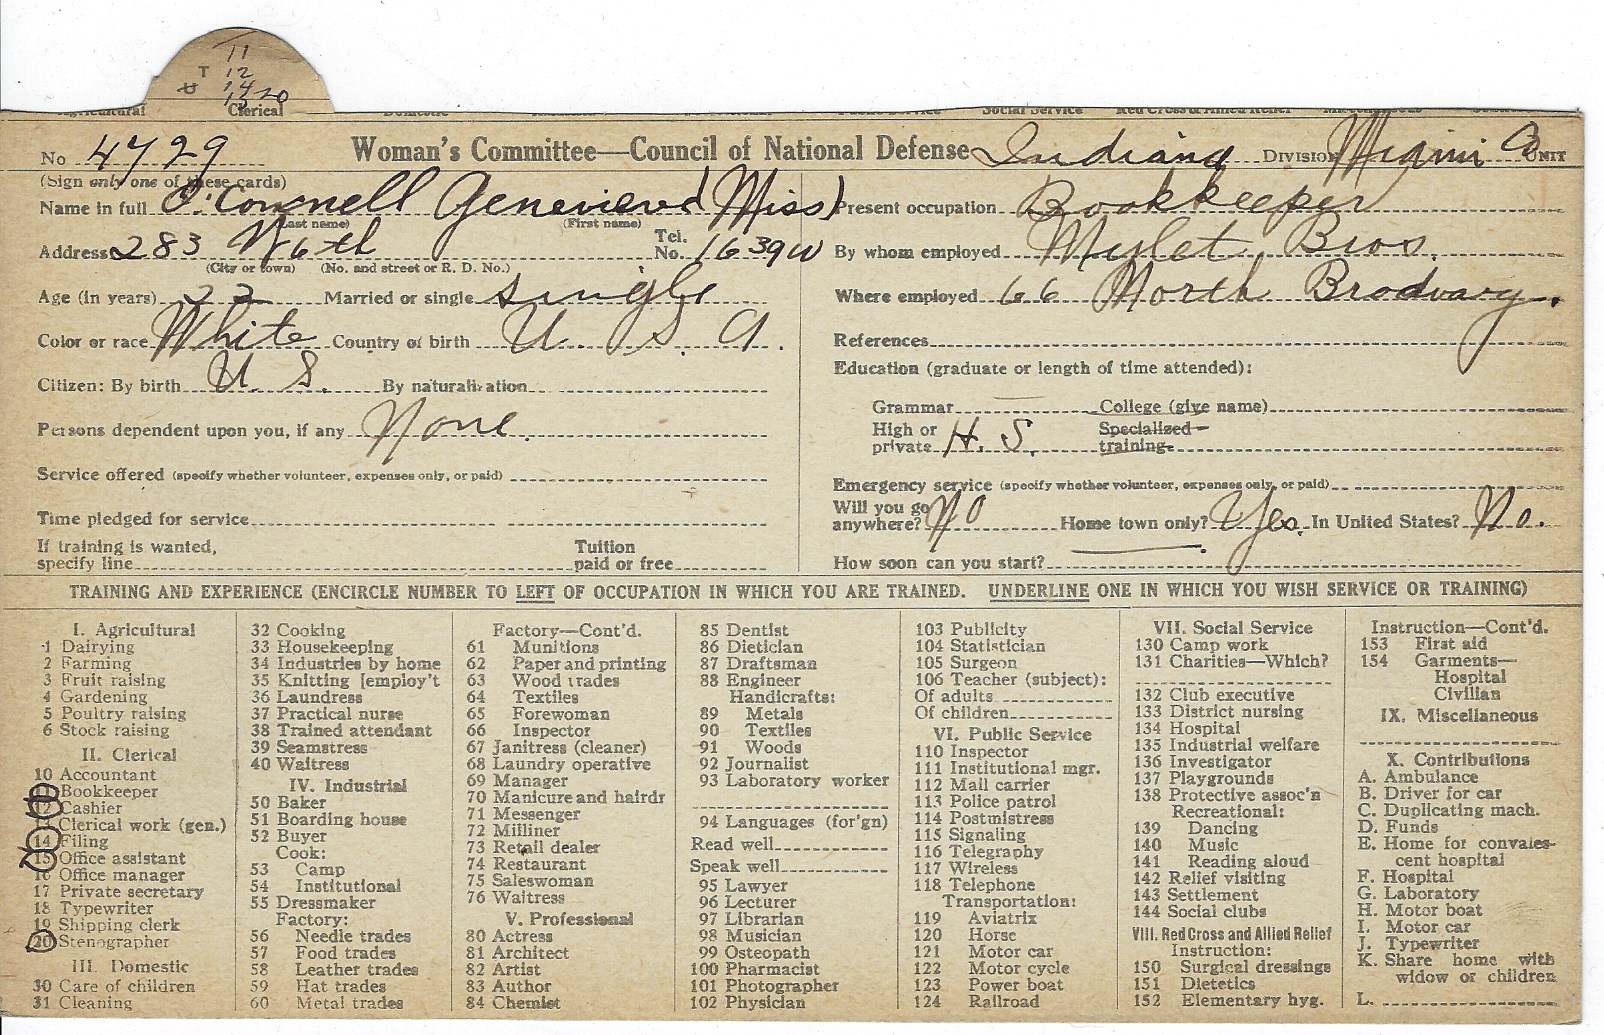 11
T 12
U 14
15 20
Agricultural Clerical Domestic Social Service Red Cross & Allied Relief Miscellaneous
No 4729 Woman's Committee—Council of National Defense Indiana DIVISION Miami Co UNIT
(Sign only one of these cards)
Name in full O'Connell Genevieve (Miss)
(Last name) (First name)
Address 283 W 6th Tel. No. 1639W
(City or town) (No. and street or R. D. No.)
Age (in years) 22 Married or single single
Color or race White Country of birth U. S. A.
Citizen: By birth U. S. By naturalization
Persons dependent upon you, if any None.
Service offered (specify whether volunteer, expenses only, or paid)
Time pledged for service
If training is wanted, specify line Tuition paid or free
Present occupation Bookkeeper
By whom employed Bros.
Where employed 66 North Brodway.
References
Education (graduate or length of time attended):
Grammar College (give name)
High or private H. S. Specialized training
Emergency service (specify whether volunteer, expenses only, or paid)
Will you go anywhere? No Home town only? Yes. In United States? No.
How soon can you start?
TRAINING AND EXPERIENCE (ENCIRCLE NUMBER TO LEFT OF OCCUPATION IN WHICH YOU ARE TRAINED. UNDERLINE ONE IN WHICH YOU WISH SERVICE OR TRAINING)
I. Agricultural
1 Dairying
2 Farming
3 Fruit raising
4 Gardening
5 Poultry raising
6 Stock raising
II. Clerical
10 Accountant
11 Bookkeeper
12 Cashier
13 Clerical work (gen.)
14 Filing
15 Office assistant
16 Office manager
17 Private secretary
18 Typewriter
19 Shipping clerk
20 Stenographer
III. Domestic
30 Care of children
31 Cleaning
32 Cooking
33 Housekeeping
34 Industries by home
35 Knitting [employ't
36 Laundress
37 Practical nurse
38 Trained attendant
39 Seamstress
40 Waitress
IV. Industrial
50 Baker
51 Boarding house
52 Buyer
Cook:
53 Camp
54 Institutional
55 Dressmaker
Factory:
56 Needle trades
57 Food trades
58 Leather trades
59 Hat trades
60 Metal trades
Factory—Cont'd.
61 Munitions
62 Paper and printing
63 Wood trades
64 Textiles
65 Forewoman
66 Inspector
67 Janitress (cleaner)
68 Laundry operative
69 Manager
70 Manicure and hairdr
71 Messenger
72 Milliner
73 Retail dealer
74 Restaurant
75 Saleswoman
76 Waitress
V. Professional
80 Actress
81 Architect
82 Artist
83 Author
84 Chemist
85 Dentist
86 Dietician
87 Draftsman
88 Engineer
Handicrafts:
89 Metals
90 Textiles
91 Woods
92 Journalist
93 Laboratory worker
94 Languages (for'gn)
Read well
Speak well
95 Lawyer
96 Lecturer
97 Librarian
98 Musician
99 Osteopath
100 Pharmacist
101 Photographer
102 Physician
103 Publicity
104 Statistician
105 Surgeon
106 Teacher (subject):
Of adults
Of children
VI. Public Service
110 Inspector
111 Institutional mgr.
112 Mail carrier
113 Police patrol
114 Postmistress
115 Signaling
116 Telegraphy
117 Wireless
118 Telephone
Transportation:
119 Aviatrix
120 Horse
121 Motor car
122 Motor cycle
123 Power boat
124 Railroad
VII. Social Service
130 Camp work
131 Charities—Which?
132 Club executive
133 District nursing
134 Hospital
135 Industrial welfare
136 Investigator
137 Playgrounds
138 Protective assoc'n
Recreational:
139 Dancing
140 Music
141 Reading aloud
142 Relief visiting
143 Settlement
144 Social clubs
VIII. Red Cross and Allied Relief
Instruction:
150 Surgical dressings
151 Dietetics
152 Elementary hyg.
Instruction—Cont'd.
153 First aid
154 Garments—
Hospital
Civilian
IX. Miscellaneous
X. Contributions
A. Ambulance
B. Driver for car
C. Duplicating mach.
D. Funds
E. Home for convales-
cent hospital
F. Hospital
G. Laboratory
H. Motor boat
I. Motor car
J. Typewriter
K. Share home with
widow or children
L.